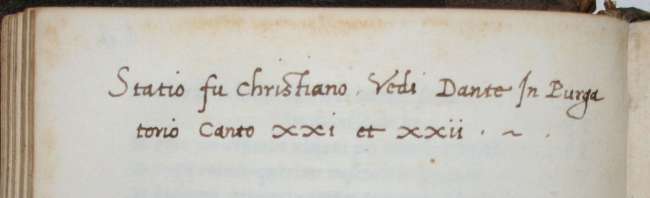 Statio fu Christiano. Vedi Dante In Purga
torio Canto XXI et XXII . ~ .